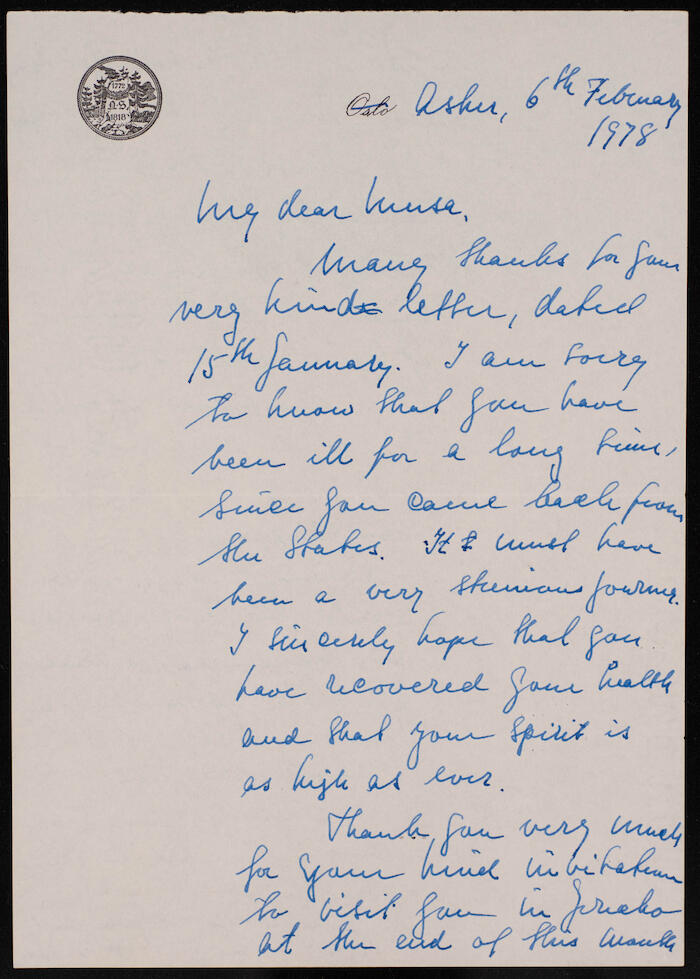 1772
D.S.
1818
Oslo Asker, 6th February
1978
My dear Musa,
Many thanks for your
very kind letter, dated
15th January. I am sorry
to know that you have
been ill for a long time,
since you came back from
the States. It must have
been a very strenious journey.
I sincerely hope that you
have recovered your health
and that your spirit is
as high as ever.
Thank you very much
for your kind invitation
to visit you in Jericho
at the end of this month